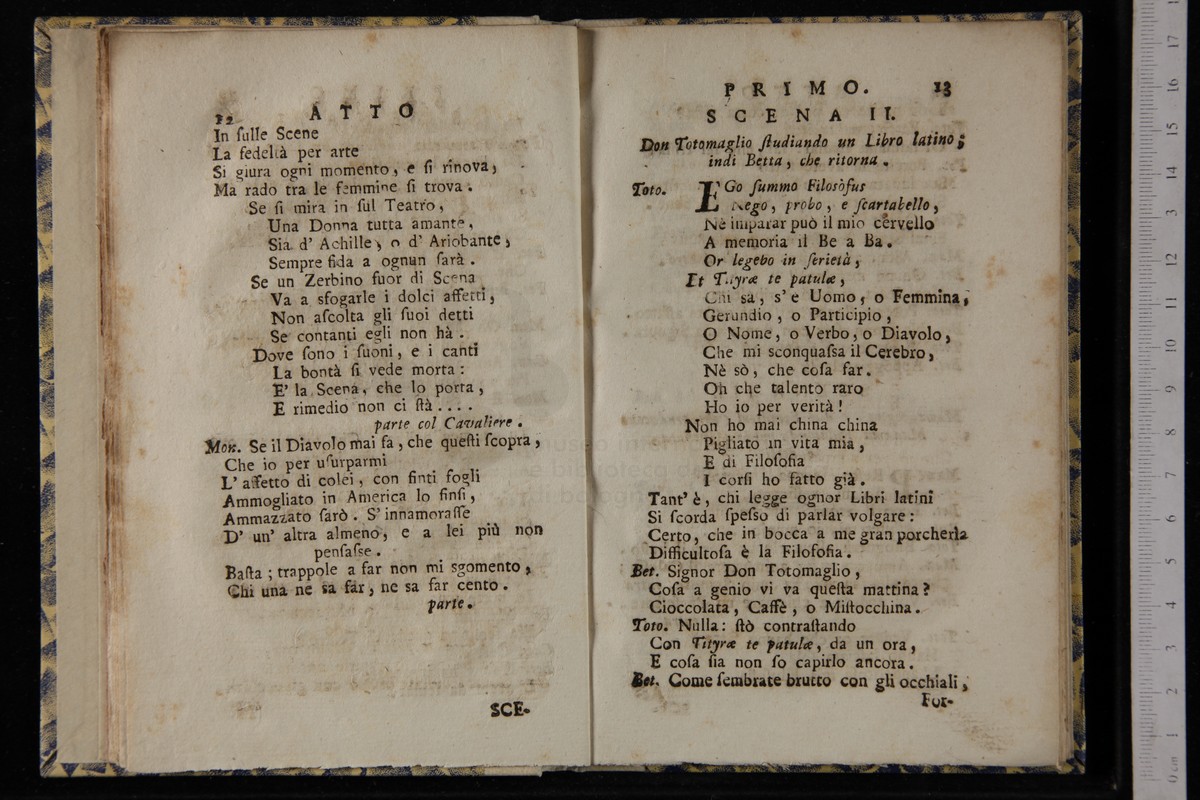 12 ATTO
In ſulle Scene
La fedeltà per arte
Si giura ogni momento, e ſi rinova;
Ma rado tra le femmine ſi trova.
Se ſi mira in ſul Teatro,
Una Donna tutta amante,
Sia d' Achille, o d' Ariobante,
Sempre fida a ognun ſarà.
Se un Zerbino fuor di Scena
Va a sfogarle i dolci affetti,
Non aſcolta gli ſuoi detti
Se contanti egli non hà.
Dove ſono i ſuoni, e i canti
La bontà ſi vede morta:
E' la Scena, che lo porta,
E rimedio non ci ſtà....
parte col Cavaliere.
Mon. Se il Diavolo mai fa, che queſti ſcopra,
Che io per uſurparmi
L' affetto di colei, con finti fogli
Ammogliato in America lo finſi,
Ammazzato ſarò. S' innamoraſſe
D' un' altra almeno, e a lei più non
penſaſse.
Baſta; trappole a far non mi sgomento,
Chi una ne sa far, ne sa far cento.
parte.
SCE-
PRIMO. 13
SCENA II.
Don Totomaglio ſtudiando un Libro latino;
indi Betta, che ritorna.
Toto. EGo ſummo Filosòfus
Nego, probo, e ſcartabello,
Nè imparar può il mio cervello
A memoria il Be a Ba.
Or legebo in ſerietà,
Et Tityræ te patulæ,
Chi sà, s' è Uomo, o Femmina,
Gerundio, o Participio,
O Nome, o Verbo, o Diavolo,
Che mi sconquaſsa il Cerebro,
Nè sò, che coſa far.
Oh che talento raro
Ho io per verità!
Non ho mai china china
Pigliato in vita mia,
E di Filoſofia
I corſi ho fatto già.
Tant' è, chi legge ognor Libri latini
Si ſcorda ſpeſso di parlar volgare:
Certo, che in bocca a me gran porcherìa
Difficultoſa è la Filoſofia.
Bet. Signor Don Totomaglio,
Coſa a genio vi va queſta mattina?
Cioccolata, Caffè, o Miſtocchina.
Toto. Nulla: ſtò contraſtando
Con Tityræ te patulæ, da un ora,
E coſa ſia non ſo capirlo ancora.
Bet. Come ſembrate brutto con gli occhiali,
For-